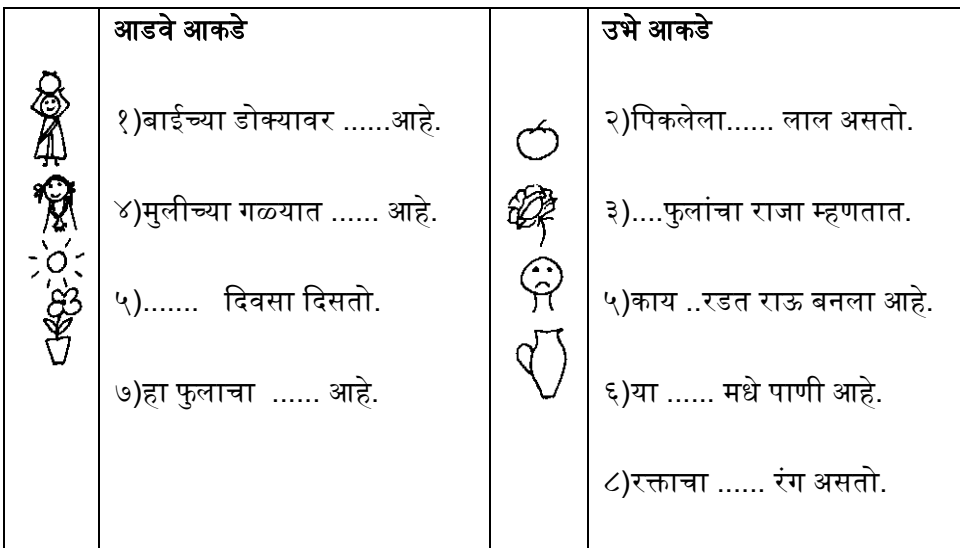 आडवे आकडे
१)बाईच्या डोक्यावर ......आहे.
४)मुलीच्या गळ्यात ...... आहे.
५)....... दिवसा दिसतो.
७)हा फुलाचा ...... आहे.
उभे आकडे
२)पिकलेला...... लाल असतो.
३)....फुलांचा राजा म्हणतात.
५)काय ..रडत राऊ बनला आहे.
६)या ...... मधे पाणी आहे.
८)रक्ताचा ...... रंग असतो.